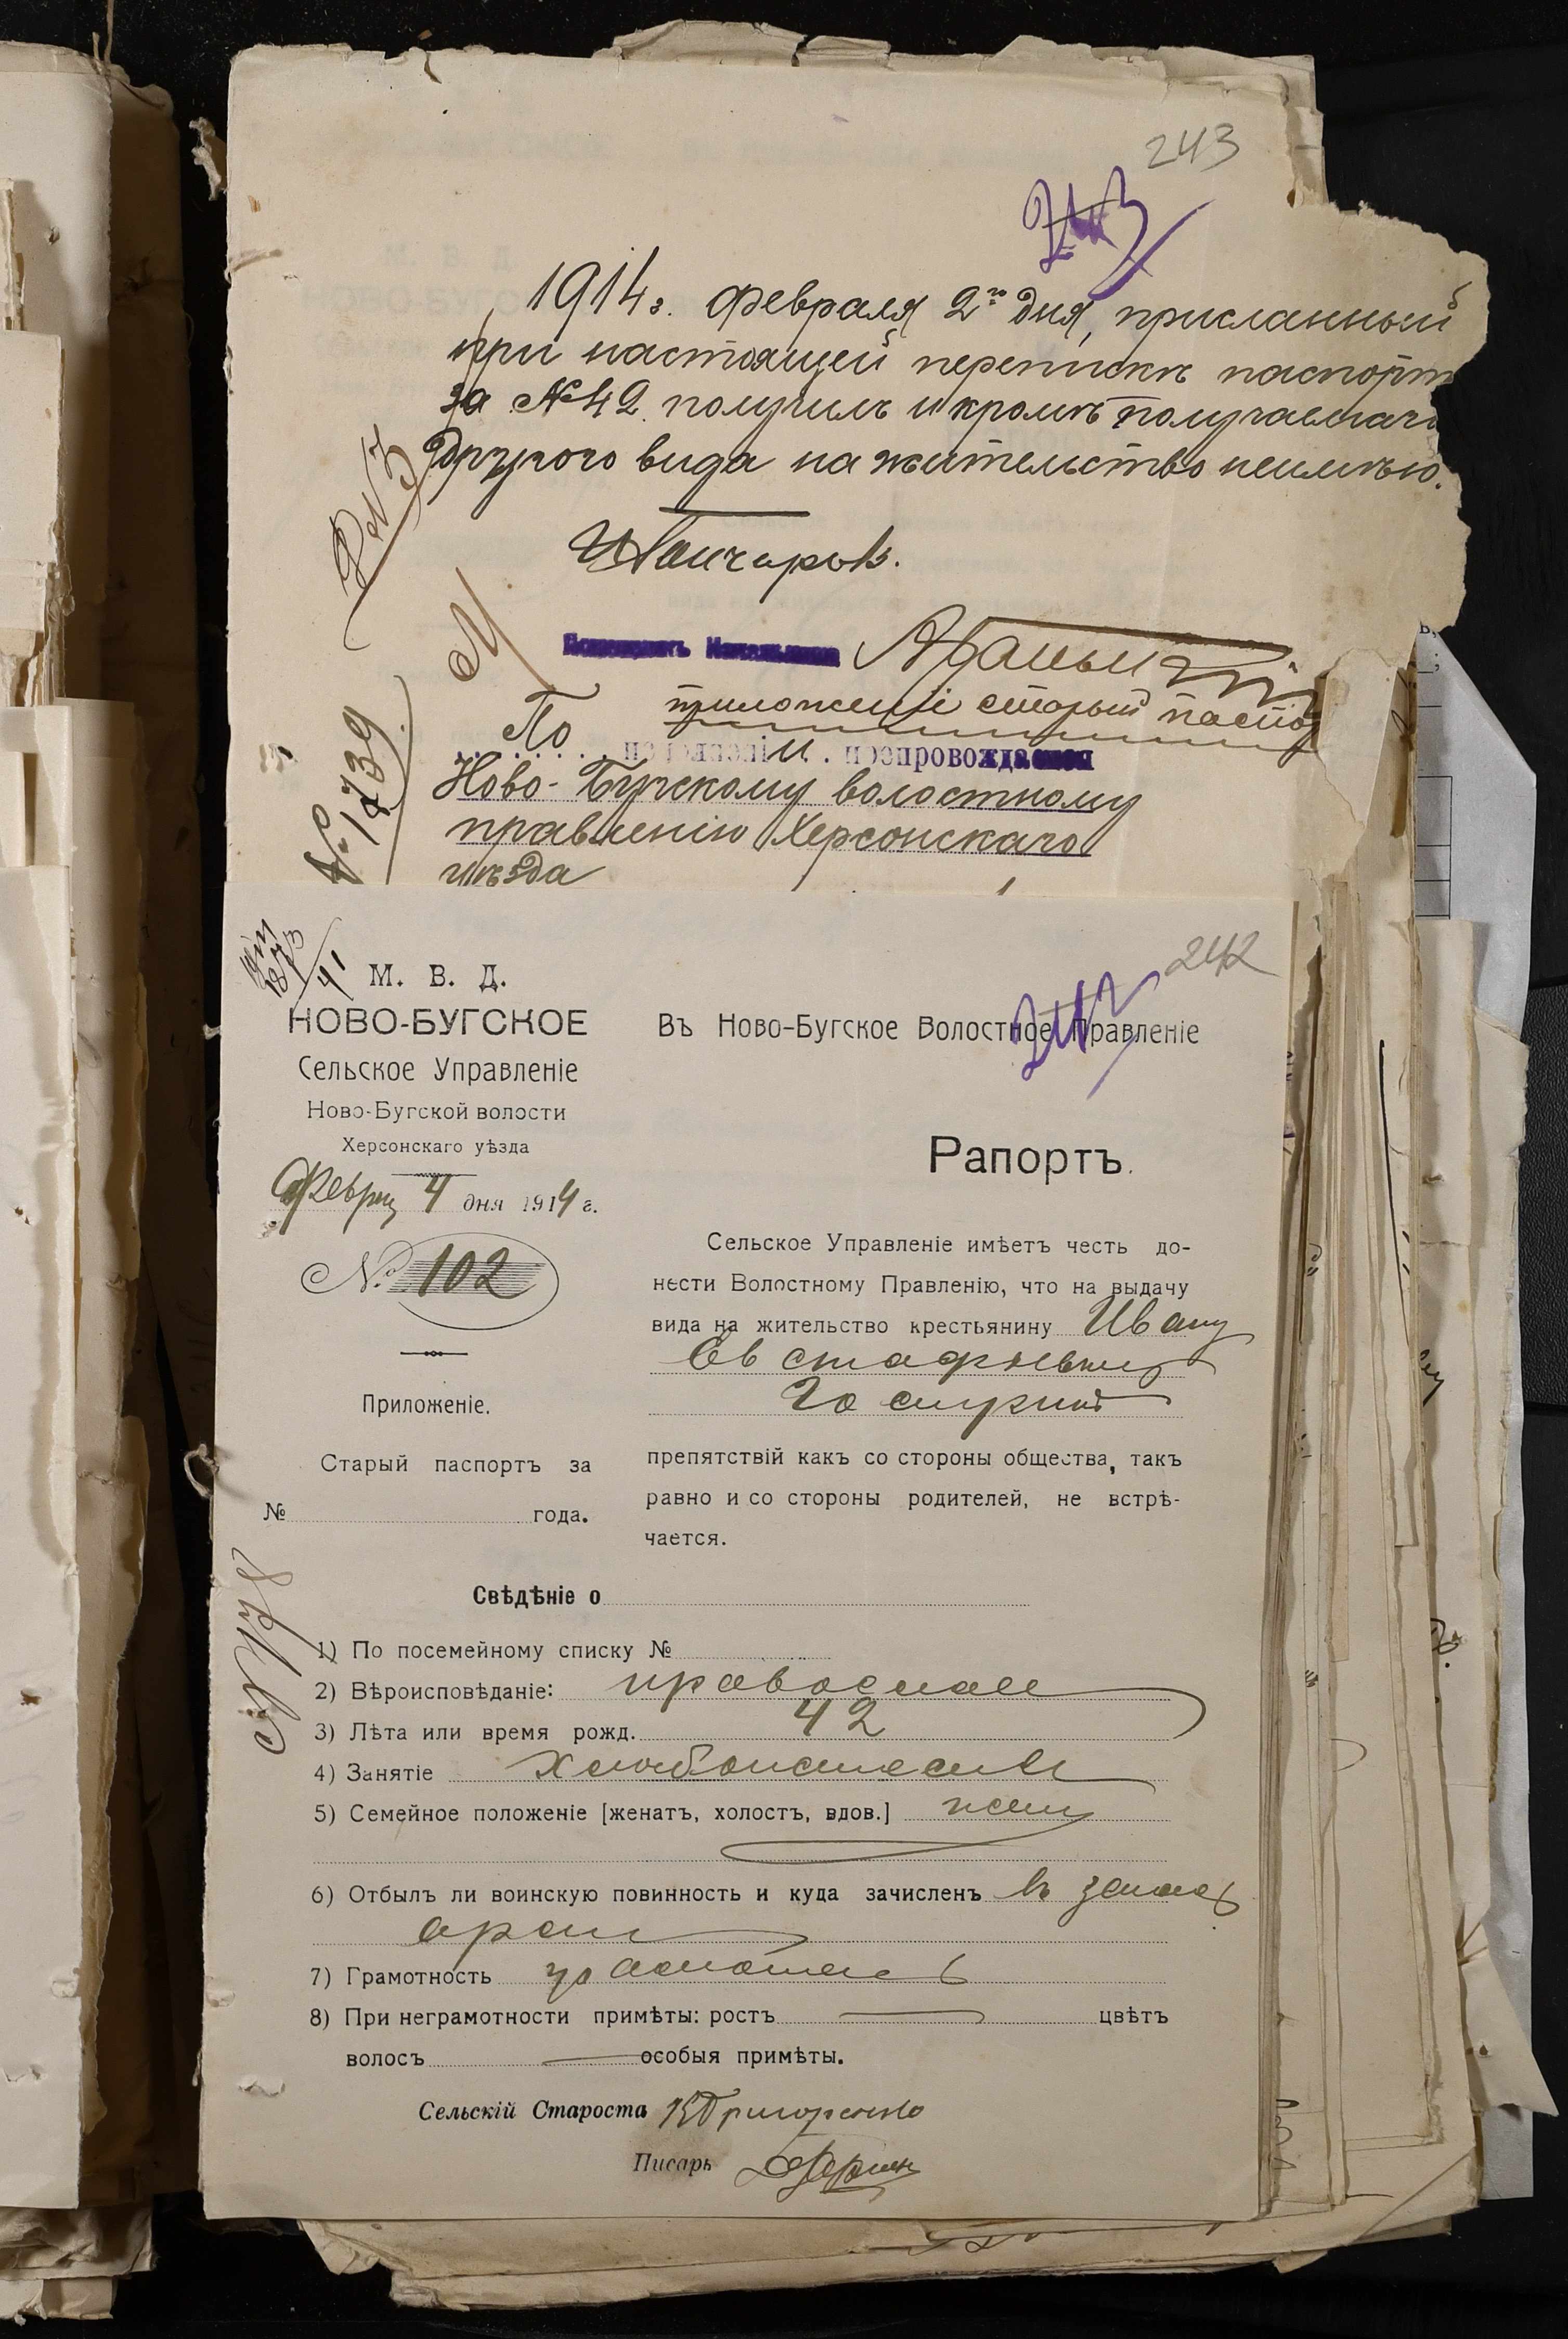 243
243
1914 г. Февраля 2го дня, присланный
при настоящей перепискѣ паспорт
за № 42 получилъ и кромѣ получаемаго
другого вида на жительство неимѣю.
Помощникъ Начальника
приложеніе старый паспо
По исполненіи . препровождается
Ново-Бугскому волостному
правленію Херсонскаго
уѣзда
№ 1739
242
М. В. Д.
НОВО-БУГСКОЕ
Сельское Управленіе
Ново-Бугской волости
Херсонскаго уѣзда
Февра 4 дня 1914 г.
№ 102
Приложеніе.
Старый паспортъ за
№ года.
Въ Ново-Бугское Волостное Правленіе
242
Рапортъ.
Сельское Управленіе имѣетъ честь до-
нести Волостному Правленію, что на выдачу
вида на жительство крестьянину Ивану
Евстафьевичу
препятствій какъ со стороны общества, такъ
равно и со стороны родителей, не встрѣ-
чается.
Свѣдѣніе о
1) По посемейному списку №
2) Вѣроисповѣданіе: православ
3) Лѣта или время рожд. 42
4) Занятіе хлѣбопашест
5) Семейное положеніе [женатъ, холостъ, вдов.] жен
6) Отбылъ ли воинскую повинность и куда зачисленъ въ запас
арм
7) Грамотность грамотен
8) При неграмотности примѣты: ростъ цвѣтъ
волосъ особыя примѣты.
Сельскій Староста
Писарь